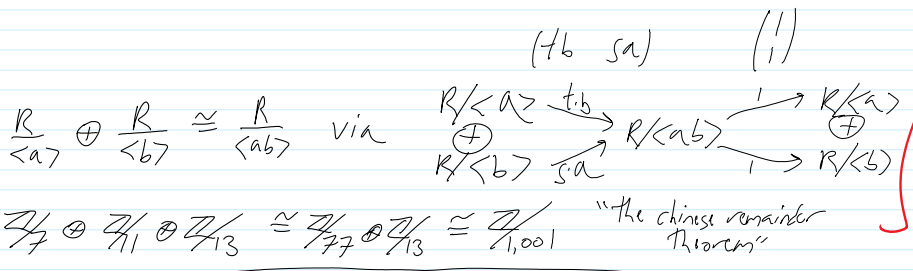 (tb sa) (1 1)
R/<a> ⊕ R/<b> ≅ R/<ab> via R/<a> ⊕ R/<b> t·b s·a R/<ab> 1 1 R/<a> ⊕ R/<b>
ℤ/7 ⊕ ℤ/11 ⊕ ℤ/13 ≅ ℤ/77 ⊕ ℤ/13 ≅ ℤ/1,001 "the chinese remainder
theorem"